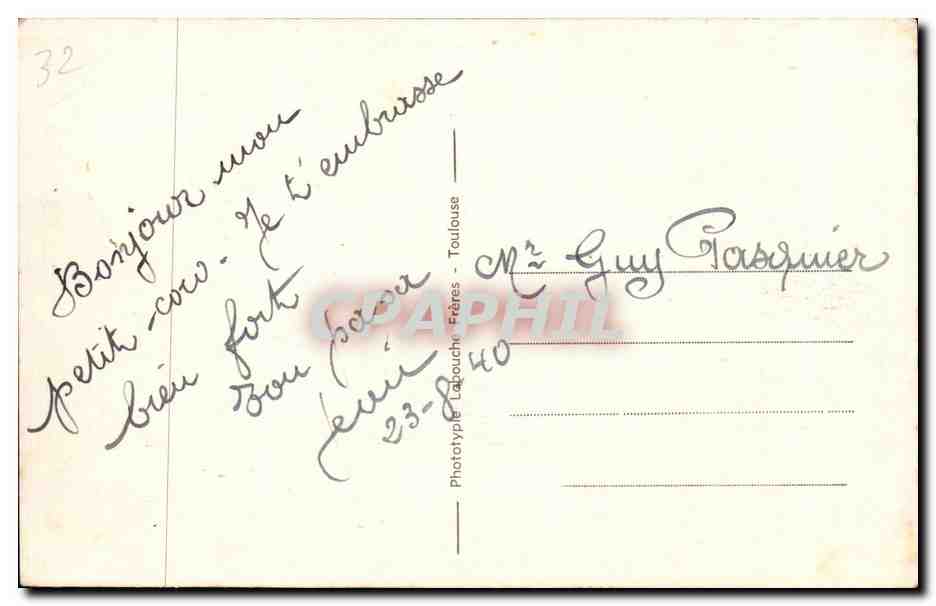 32
Bonjour mon
petit-coco. Je t'embrasse
bien fort
ton papa
23-8-40
Phototypie Labouche Frères - Toulouse
Mr Guy Pasquier
CPAPHIL